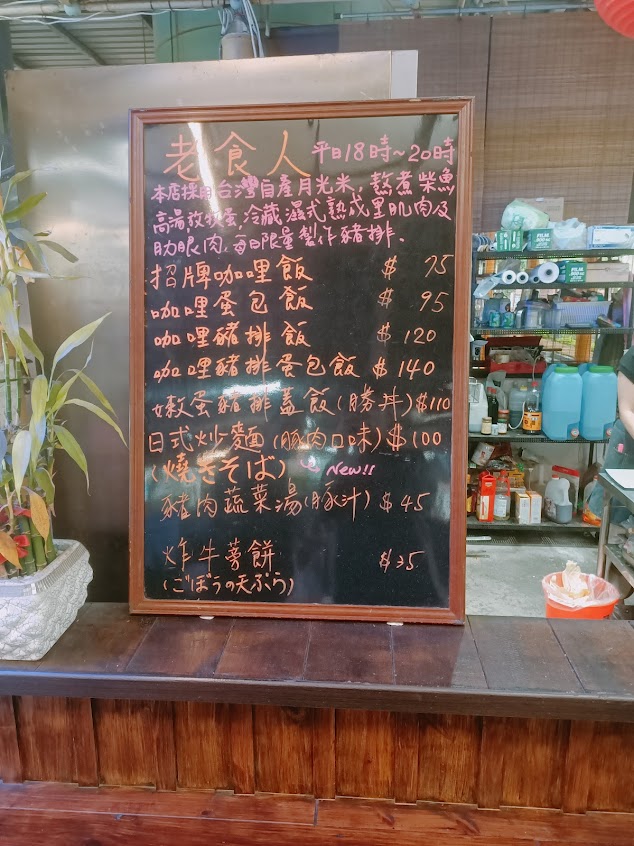 老食人 平日18時~20時
本店採用台灣自產月光米，熬煮柴魚
高湯,放牧蛋,冷藏濕式熟成里肌肉及
肋眼肉，每日限量製作豬排。
招牌咖哩飯 $ 75
咖哩蛋包飯 $ 95
咖哩豬排飯 $ 120
咖哩豬排蛋包飯 $ 140
嫩蛋豬排蓋飯(勝丼) $110
日式炒麵(豚肉口味) $100
(燒きそば) New!!
豬肉蔬菜湯(豚汁) $ 45
炸牛蒡餅 $35
(ごぼうの天ぷら)